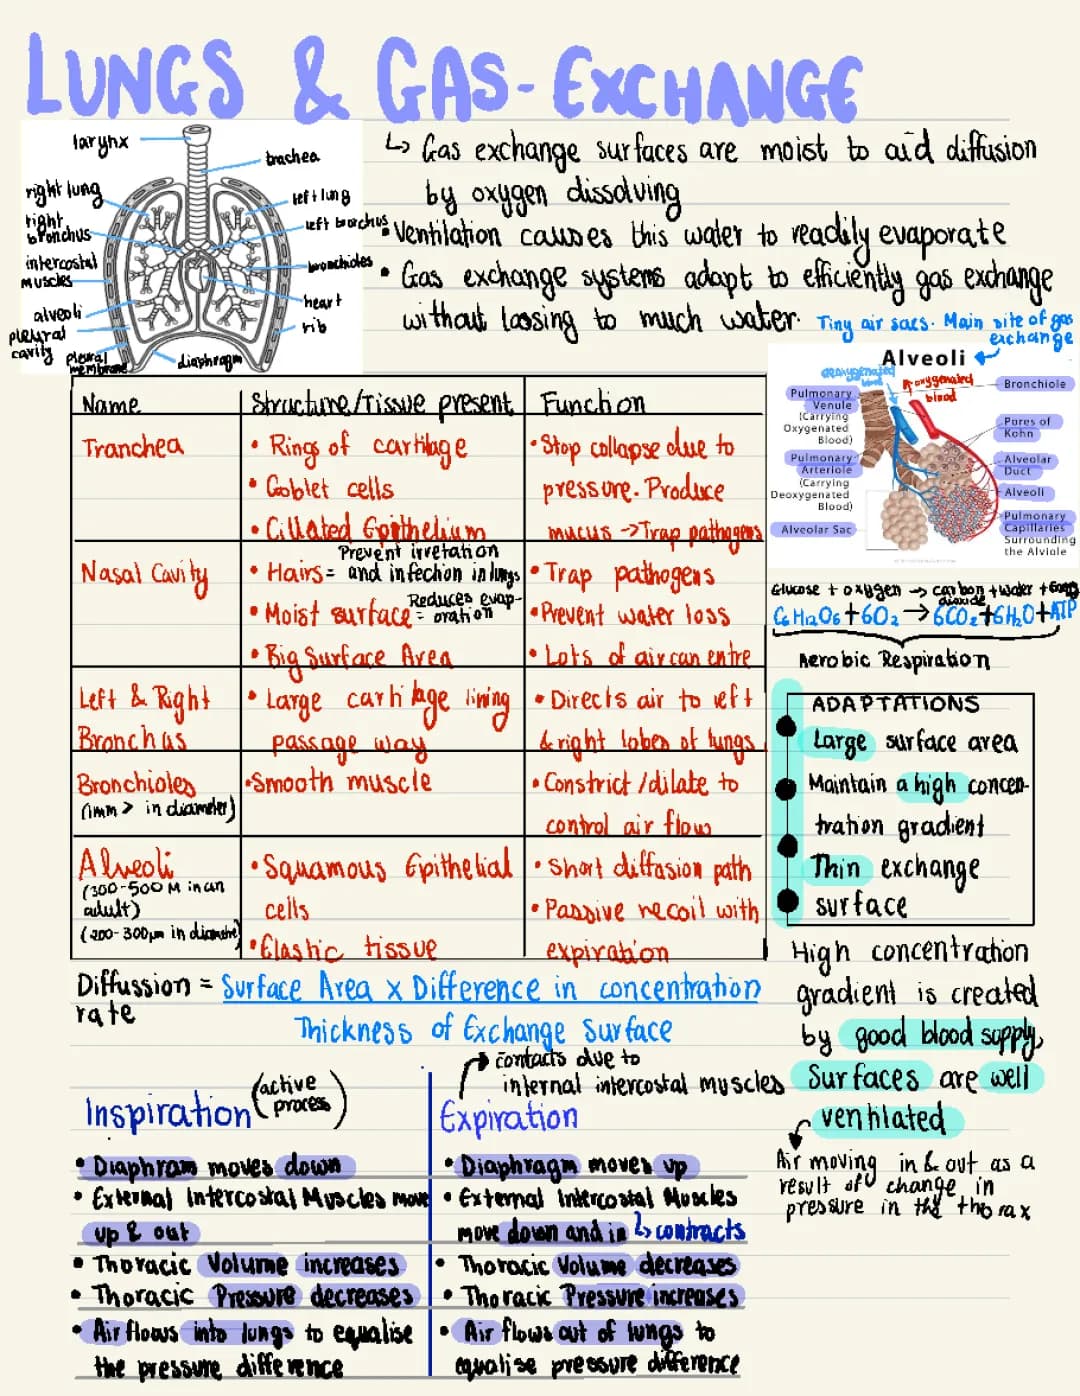 LUNGS & GAS-EXCHANGE
larynx
trachea
right lung
left lung
right
bronchus
left bronchus
intercostal
muscles
bronchioles
alveoli
heart
pleural
cavity
rib
pleural
membrane
diaphragm
↳ Gas exchange surfaces are moist to aid diffusion
by oxygen dissolving
• Ventilation causes this water to readily evaporate
• Gas exchange systems adapt to efficiently gas exchange
without loosing to much water.
Tiny air sacs. Main site of gas
exchange
Alveoli
deoxygenated
blood
oxygenated
blood
Bronchiole
Pulmonary
Venule
(Carrying
Oxygenated
Blood)
Pores of
Kohn
Pulmonary
Arteriole
(Carrying
Deoxygenated
Blood)
Alveolar
Duct
Alveoli
Alveolar Sac
Pulmonary
Capillaries
Surrounding
the Alviole
Name Structure/Tissue present Function
Tranchea
• Rings of cartilage
• Goblet cells
• Cillated Epithelium
• Stop collapse due to
pressure. Produce
mucus -> Trap pathogens
Nasal Cavity
• Hairs = Prevent irretation
and infection in lungs
• Moist surface = Reduces evap-
oration
• Big Surface Area
• Trap pathogens
• Prevent water loss
• Lots of air can entre
Left & Right
Bronchus
• Large cartilage lining
passage way
• Directs air to left
& right lobes of lungs
Bronchioles
(1mm > in diameter)
• Smooth muscle
• Constrict / dilate to
control air flow
Alveoli
(300-500 M in an
adult)
(200-300µm in diametre)
• Squamous Epithelial
cells
• Elastic tissue
• Short diffusion path
• Passive recoil with
expiration
Glucose + oxygen -> carbon + water +
dioxide
C6H12O6 + 6O2 → 6CO2 + 6H2O + ATP
Aerobic Respiration
ADAPTATIONS
• Large surface area
• Maintain a high concen-
tration gradient
• Thin exchange
• surface
High concentration
gradient is created
by good blood supply,
Surfaces are well
ventilated
Air moving in & out as a
result of change in
pressure in the thorax
Diffussion = Surface Area x Difference in concentration
rate
Thickness of Exchange Surface
Inspiration (active
process)
• Diaphram moves down
• External Intercostal Muscles move
up & out
• Thoracic Volume increases
• Thoracic Pressure decreases
• Air flows into lungs to equalise
the pressure difference
contacts due to
internal intercostal muscles
Expiration
• Diaphragm moves up
• External Intercostal Muscles
move down and in ↳ contracts
• Thoracic Volume decreases
• Thoracic Pressure increases
• Air flows out of lungs to
equalise pressure difference